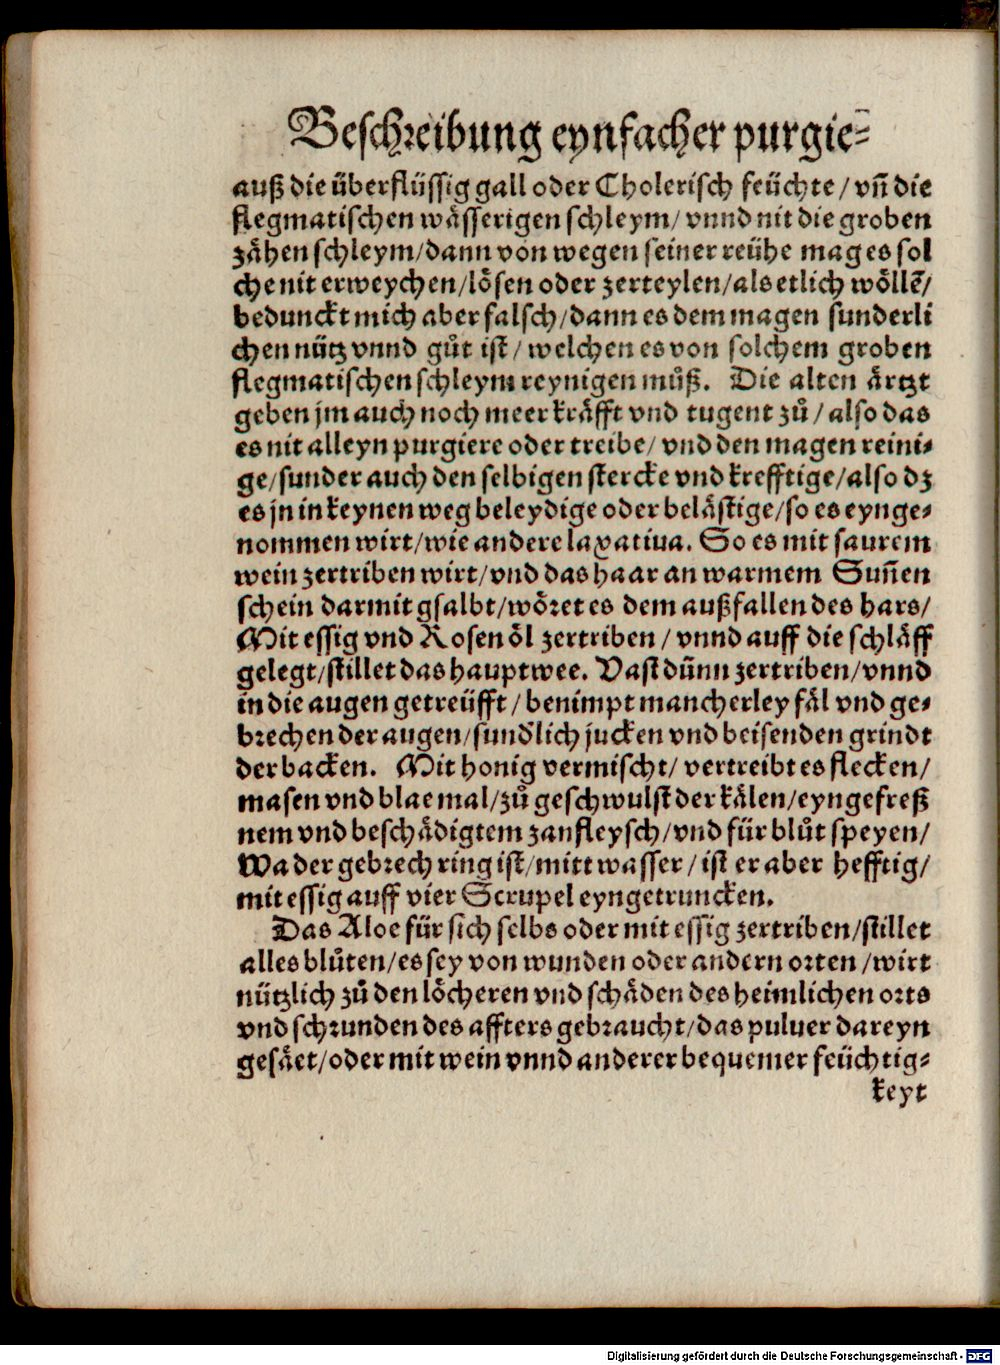 Beschreibung eynfacher purgie⸗
auß die überflüssig gall oder Cholerisch feüchte / vn̄ die
flegmatischen wässerigen schleym / vnnd nit die groben
zähen schleym / dann von wegen seiner reühe mag es sol
che nit erweychen / lösen oder zerteylen / als etlich wöllē /
bedunckt mich aber falsch / dann es dem magen sunderli
chen nütz vnnd gůt ist / welchen es von solchem groben
flegmatischen schleym reynigen můß. Die alten ärtzt
geben jm auch noch meer kräfft vnd tugent zů / also das
es nit alleyn purgiere oder treibe / vnd den magen reini⸗
ge / sunder auch den selbigen stercke vnd krefftige / also dz
es jn in keynen weg beleydige oder belästige / so es eynge⸗
nommen wirt / wie andere laxatiua. So es mit saurem
wein zertriben wirt / vnd das haar an warmem Sun̄en
schein darmit gsalbt / wöret es dem außfallen des hars /
Mit essig vnd Rosen öl zertriben / vnnd auff die schläff
gelegt / stillet das hauptwee. Vast dünn zertriben / vnnd
in die augen getreüfft / benimpt mancherley fäl vnd ge⸗
brechen der augen / sund'lich jucken vnd beisenden grindt
der backen. Mit honig vermischt / vertreibt es flecken /
masen vnd blae mal / zů geschwulst der kälen / eyngefreß
nem vnd beschädigtem zanfleysch / vnd für blůt speyen /
Wa der gebrech ring ist / mitt wasser / ist er aber hefftig /
mit essig auff vier Scrupel eyngetruncken.
Das Aloe für sich selbs oder mit essig zertriben / stillet
alles blůten / es sey von wunden oder andern orten / wirt
nützlich zů den löcheren vnd schäden des heimlichen orts
vnd schrunden des affters gebraucht / das puluer dareyn
gesäet / oder mit wein vnnd anderer bequemer feüchtig⸗
keyt
Digitalisierung gefördert durch die Deutsche Forschungsgemeinschaft - DFG